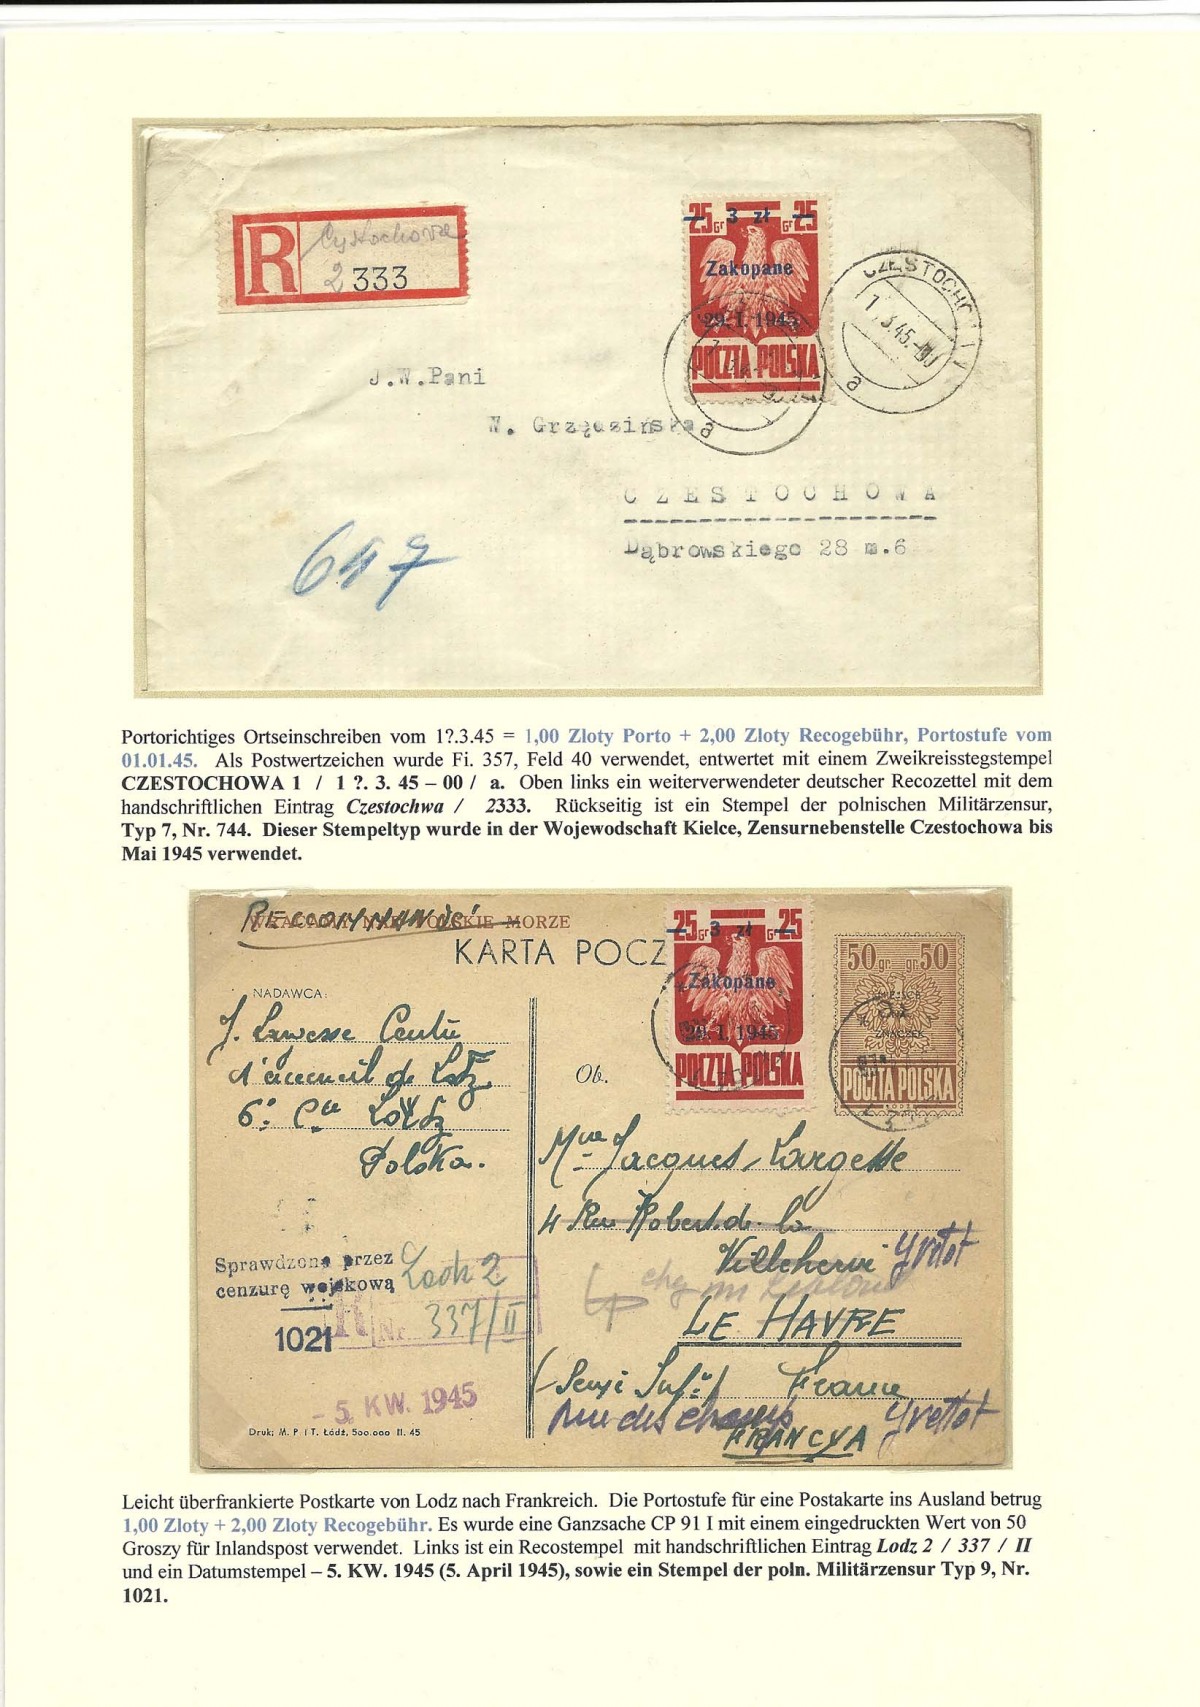 R
Częstochowa
2 333
25 Gr 3 zł Gr 25
Zakopane
29. I. 1945
POCZTA POLSKA
CZĘSTOCHO
3.45.
a
a
J.W.Pani
W. Grzędzińska
CZESTOCHOWA
Dąbrowskiego 28 m.6
647
Portorichtiges Ortseinschreiben vom 1?.3.45 = 1,00 Zloty Porto + 2,00 Zloty Recogebühr, Portostufe vom
01.01.45. Als Postwertzeichen wurde Fi. 357, Feld 40 verwendet, entwertet mit einem Zweikreisstegstempel
CZESTOCHOWA 1 / 1 ?. 3. 45 – 00 / a. Oben links ein weiterverwendeter deutscher Recozettel mit dem
handschriftlichen Eintrag Czestochwa / 2333. Rückseitig ist ein Stempel der polnischen Militärzensur,
Typ 7, Nr. 744. Dieser Stempeltyp wurde in der Wojewodschaft Kielce, Zensurnebenstelle Czestochowa bis
Mai 1945 verwendet.
MORZE
KARTA POCZ
25 Gr 3 zł Gr 25
Zakopane
29. I. 1945
POCZTA POLSKA
50 gr gr 50
ZNACZEK
POCZTA POLSKA
NADAWCA:
d'accueil de Lodz
6e Cie Lodz
Polska.
Ob.
Mme Jacques Largesse
4 Rue Robert de la
Villehervé Yvetot
LE HAVRE
(Seine Infre) France
Rue des champs Yvettot
FRANCYA
Sprawdzono przez
cenzurę wojskową
1021
R Nr.
Lodz 2
337/II
- 5. KW. 1945
Druk: M. P i T. Łódź, 500.000 II. 45
Leicht überfrankierte Postkarte von Lodz nach Frankreich. Die Portostufe für eine Postakarte ins Ausland betrug
1,00 Zloty + 2,00 Zloty Recogebühr. Es wurde eine Ganzsache CP 91 I mit einem eingedruckten Wert von 50
Groszy für Inlandspost verwendet. Links ist ein Recostempel mit handschriftlichen Eintrag Lodz 2 / 337 / II
und ein Datumstempel – 5. KW. 1945 (5. April 1945), sowie ein Stempel der poln. Militärzensur Typ 9, Nr.
1021.